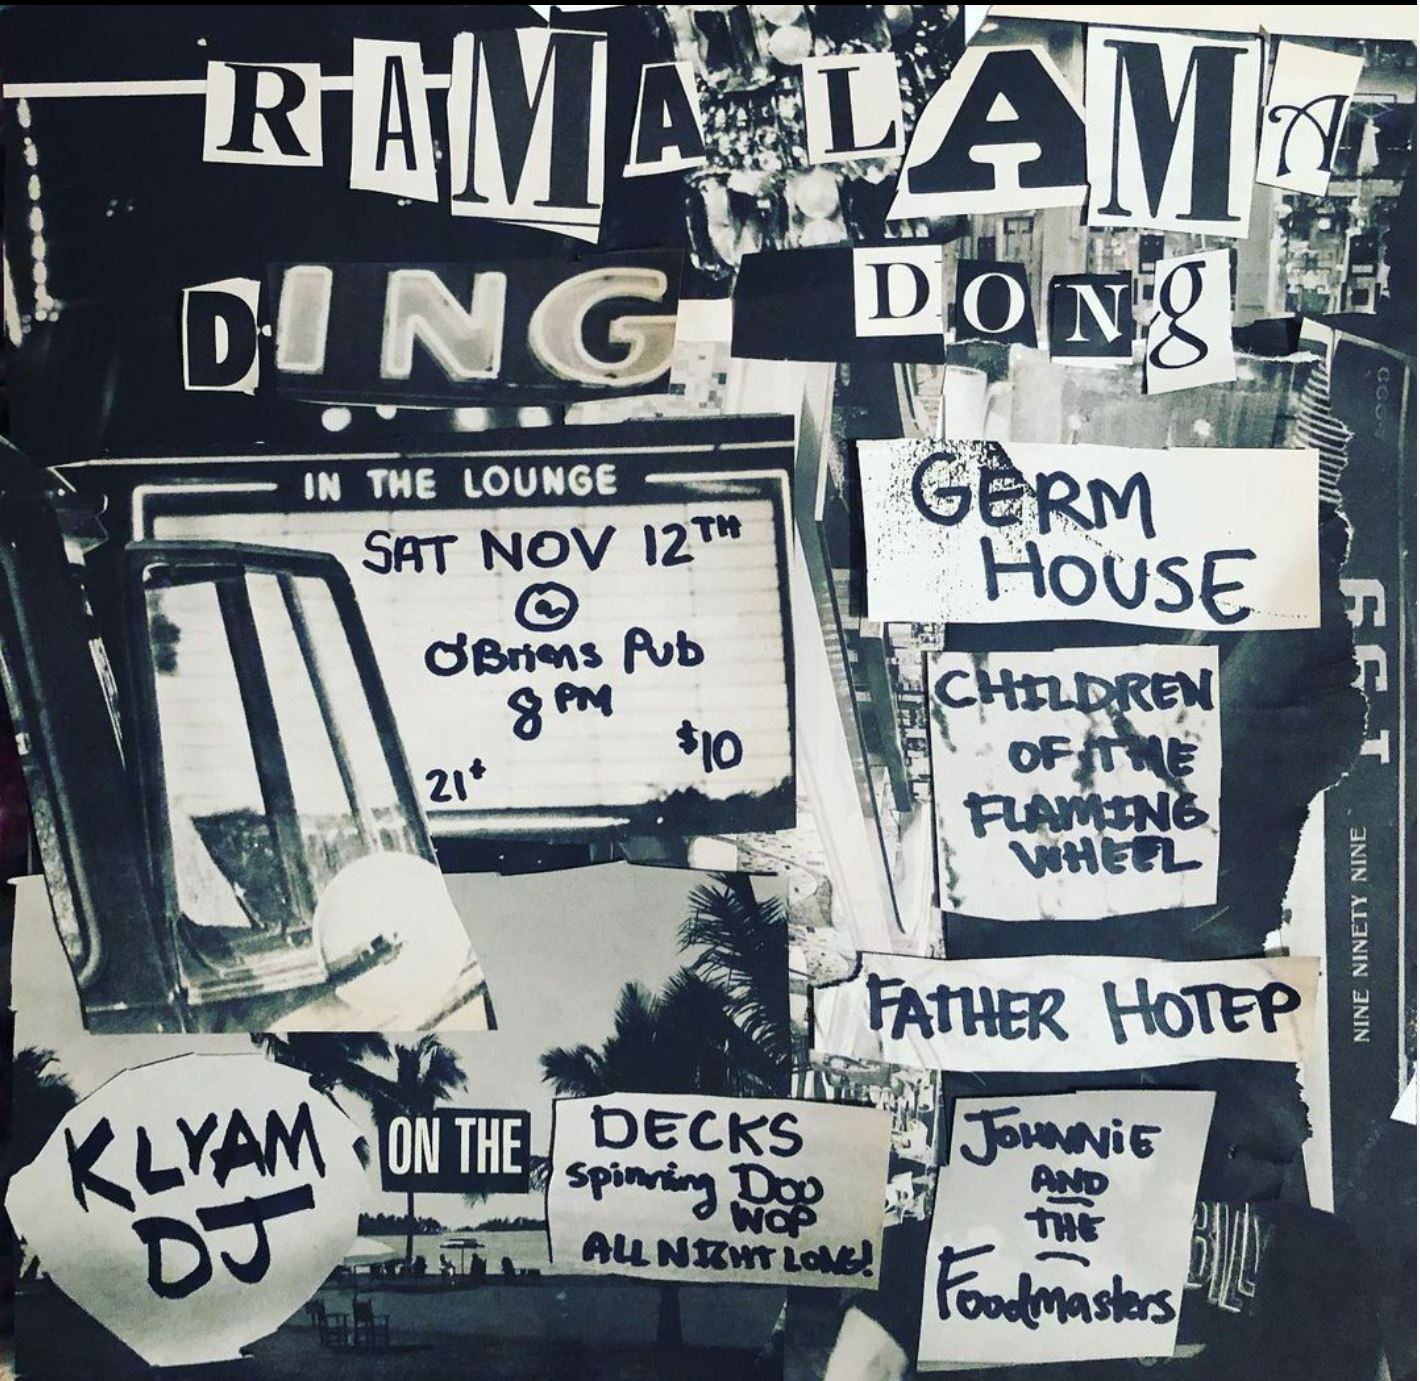 RAMA LAMA
DING DONg
IN THE LOUNGE
SAT NOV 12TH
@
O'Briens Pub
8 PM
$10
21+
GERM
HOUSE
CHILDREN
OF THE
FLAMING
WHEEL
FATHER HOTEP
JOHNNiE
AND
THE
Foodmasters
KLYAM
DJ
ON THE
DECKS
spinning Doo
WOP
ALL NIGHT LONG!
NINE NINETY NINE